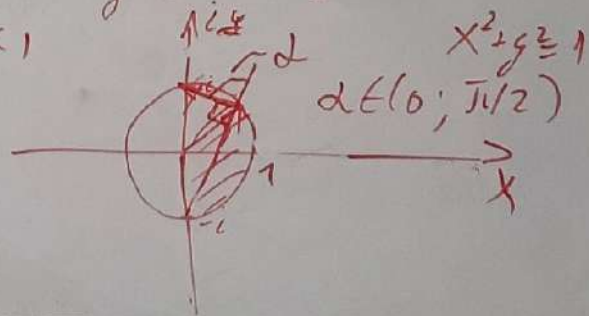 iy
α
x²+y²=1
α∈(0; π/2)
1
X
-i